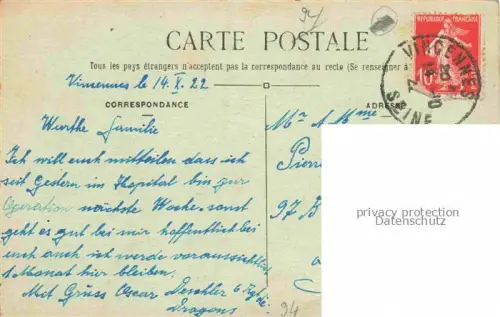 94
CARTE POSTALE
Tous les pays étrangers n'acceptent pas la correspondance au recto (Se renseigner à
REPUBLIQUE FRANÇAISE
VINCENNES
SEINE
Vincennes le 14. X. 22
CORRESPONDANCE
ADRESSE
Werthe Familie
Ich will euch mitteilen dass ich
seit Gestern im Hopital bin zur
Operation nächste Woche. sonst
geht es gut bei mir hoffentlich bei
euch auch ich werde voraussichtlich
1 Monat hier bleiben.
Mit Gruss Oscar
Dragons
Mr & Mme
Pierr
97 B
privacy protection
Datenschutz
94